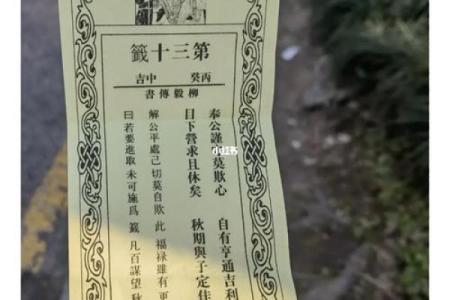 第三十籤
丙癸 中吉
柳毅傳書
奉公謹莫欺心 自有亨通吉利
目下營求且休矣 秋期與子定佳
解 公平處己 切莫自欺 此 福祿雖有 更
曰 若要進取 未可施爲 籤 凡百謀望 秋
小红书